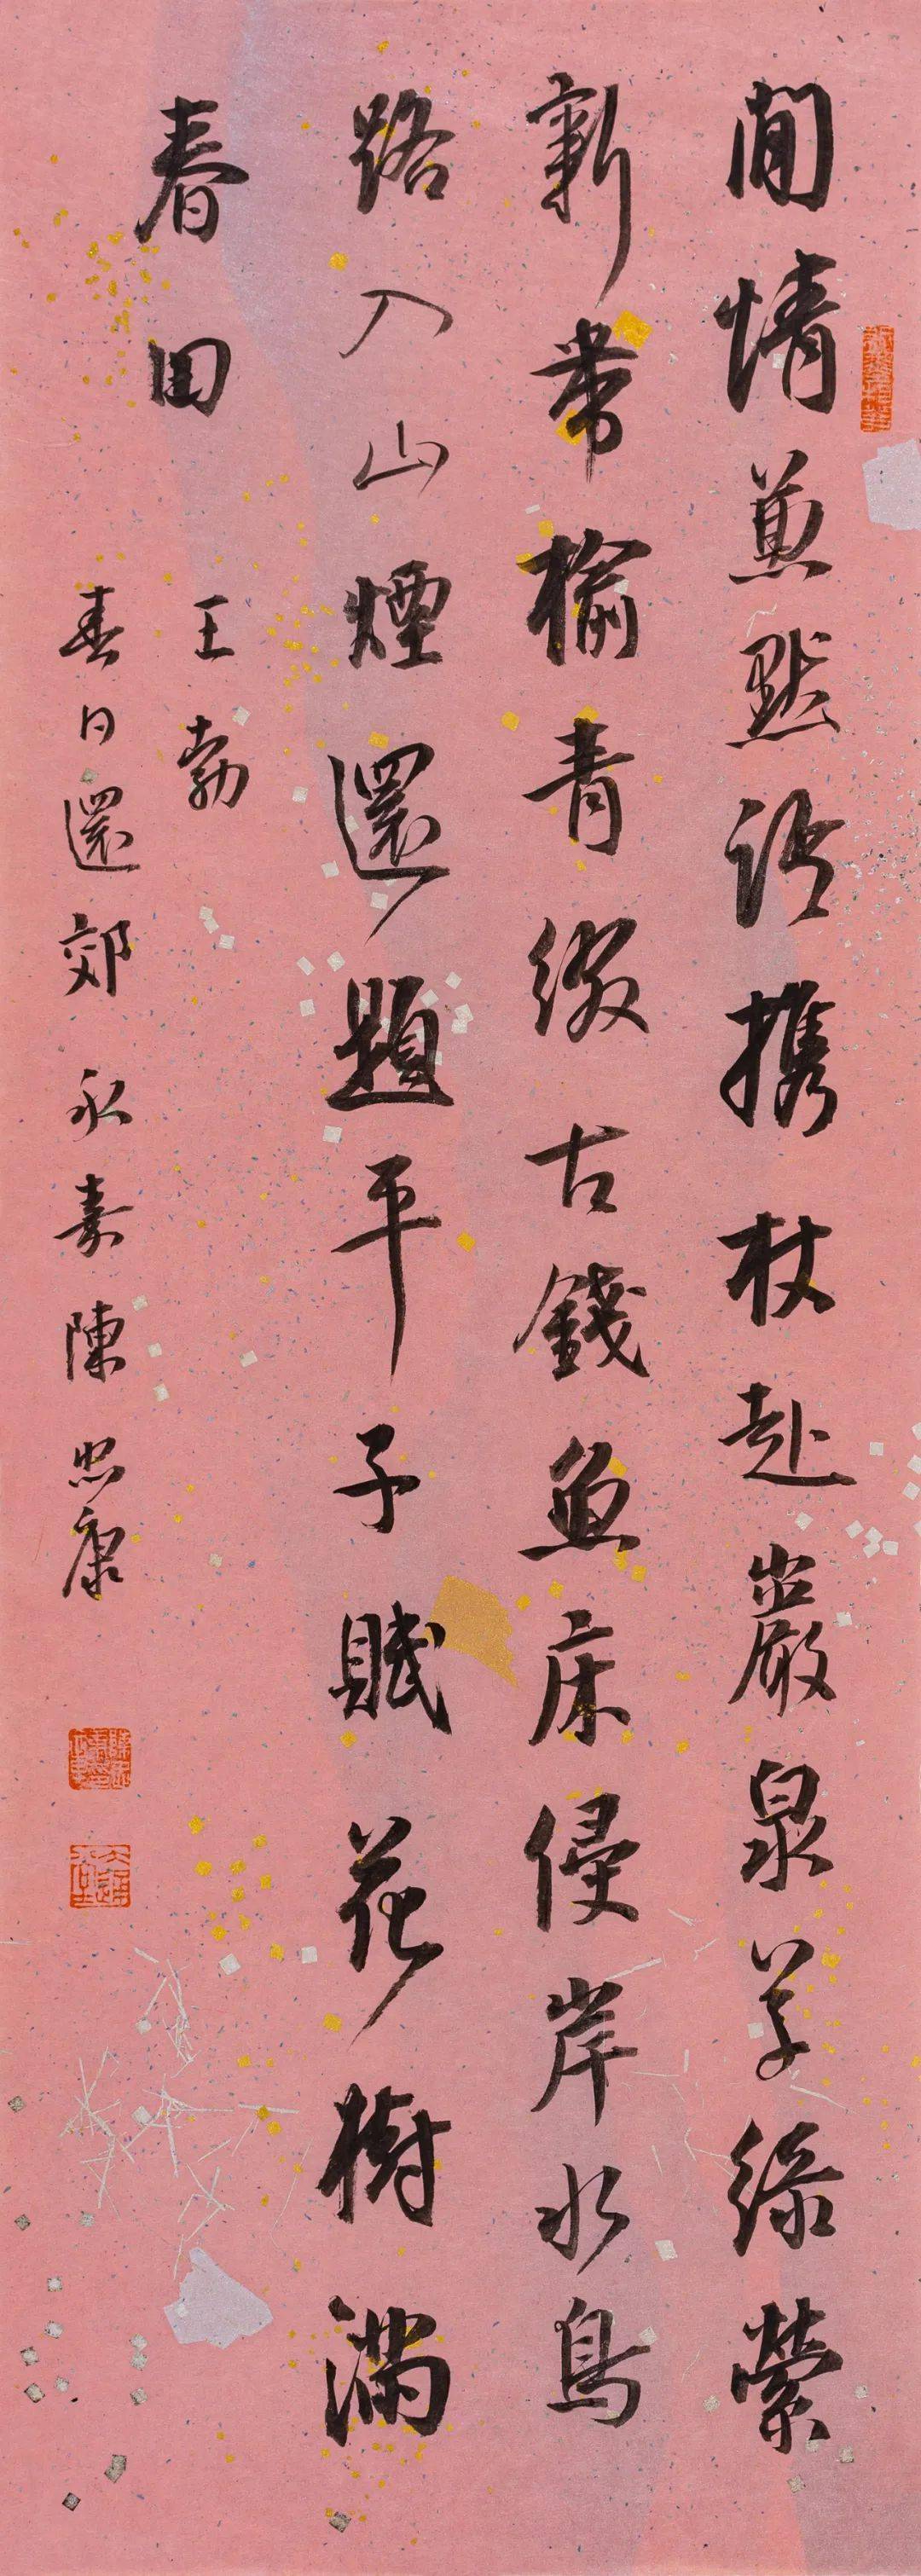 閒情兼默語携杖赴巖泉草綠縈
新帶榆青綴古錢魚床侵岸水鳥
路入山煙還題平子賦花樹滿
春田 王勃
春日還郊 永嘉陳忠康